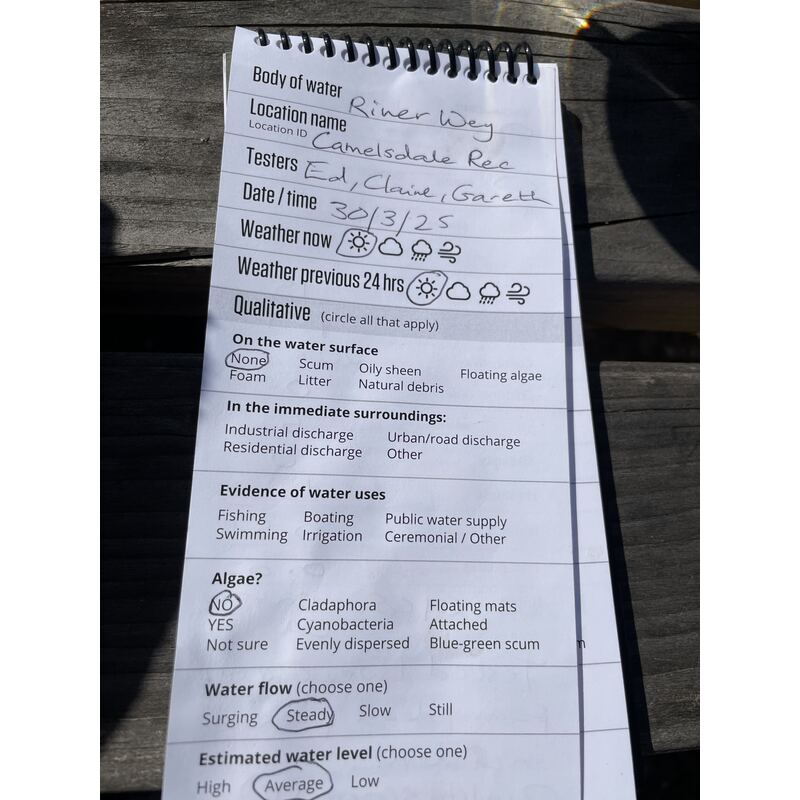 Body of water River Wey
Location name
Location ID Camelsdale Rec
Testers Ed, Claire, Gareth
Date / time 30/3/25
Weather now
Weather previous 24 hrs
Qualitative (circle all that apply)
On the water surface
None Scum Oily sheen Floating algae
Foam Litter Natural debris
In the immediate surroundings:
Industrial discharge Urban/road discharge
Residential discharge Other
Evidence of water uses
Fishing Boating Public water supply
Swimming Irrigation Ceremonial / Other
Algae?
NO Cladaphora Floating mats
YES Cyanobacteria Attached
Not sure Evenly dispersed Blue-green scum
Water flow (choose one)
Surging Steady Slow Still
Estimated water level (choose one)
High Average Low